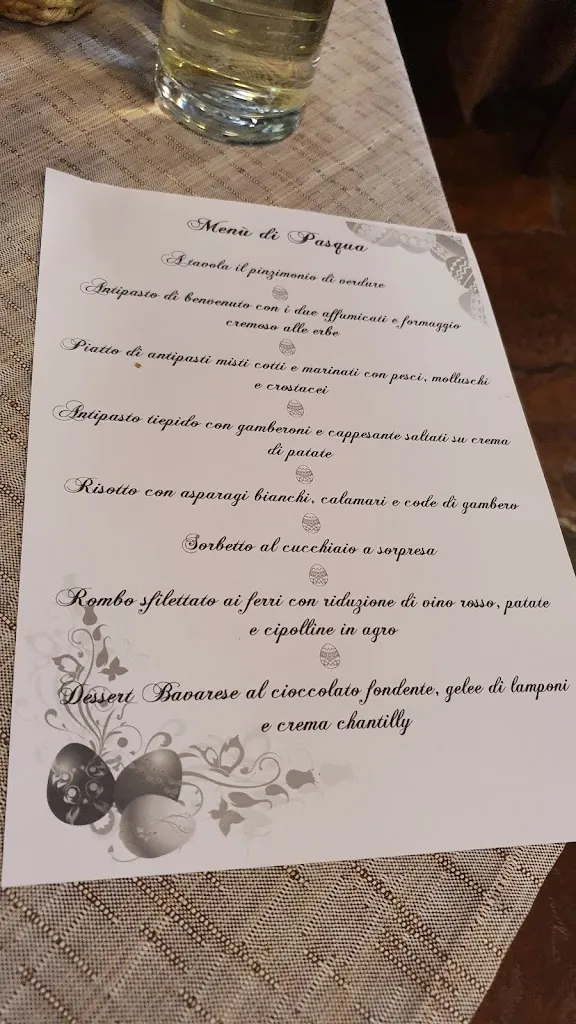 Menù di Pasqua
A tavola il pinzimonio di verdure
Antipasto di benvenuto con i due affumicati e formaggio
cremoso alle erbe
Piatto di antipasti misti cotti e marinati con pesci, molluschi
e crostacei
Antipasto tiepido con gamberoni e cappesante saltati su crema
di patate
Risotto con asparagi bianchi, calamari e code di gambero
Sorbetto al cucchiaio a sorpresa
Rombo sfilettato ai ferri con riduzione di vino rosso, patate
e cipolline in agro
Dessert Bavarese al cioccolato fondente, gelee di lamponi
e crema chantilly